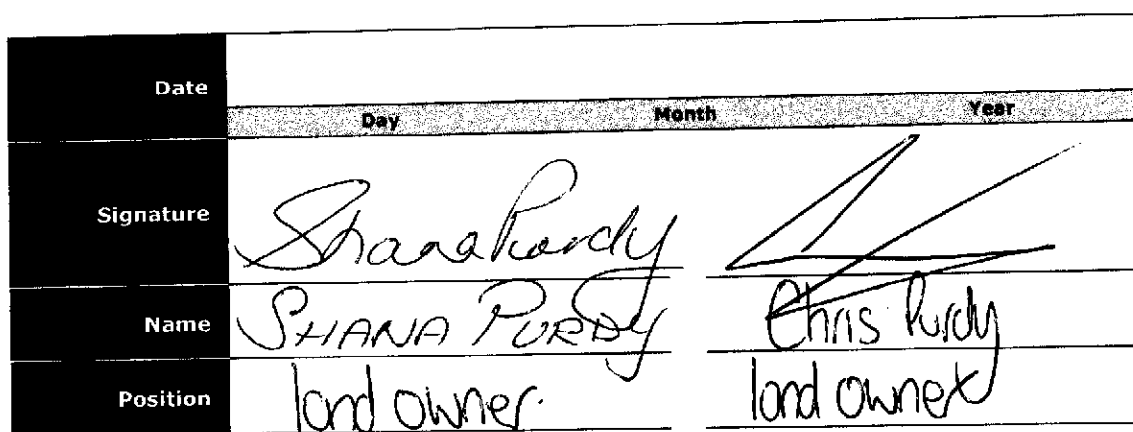 Date
Day Month Year
Signature Shana Purdy
Name SHANA PURDY Chris Purdy
Position land owner. land owner